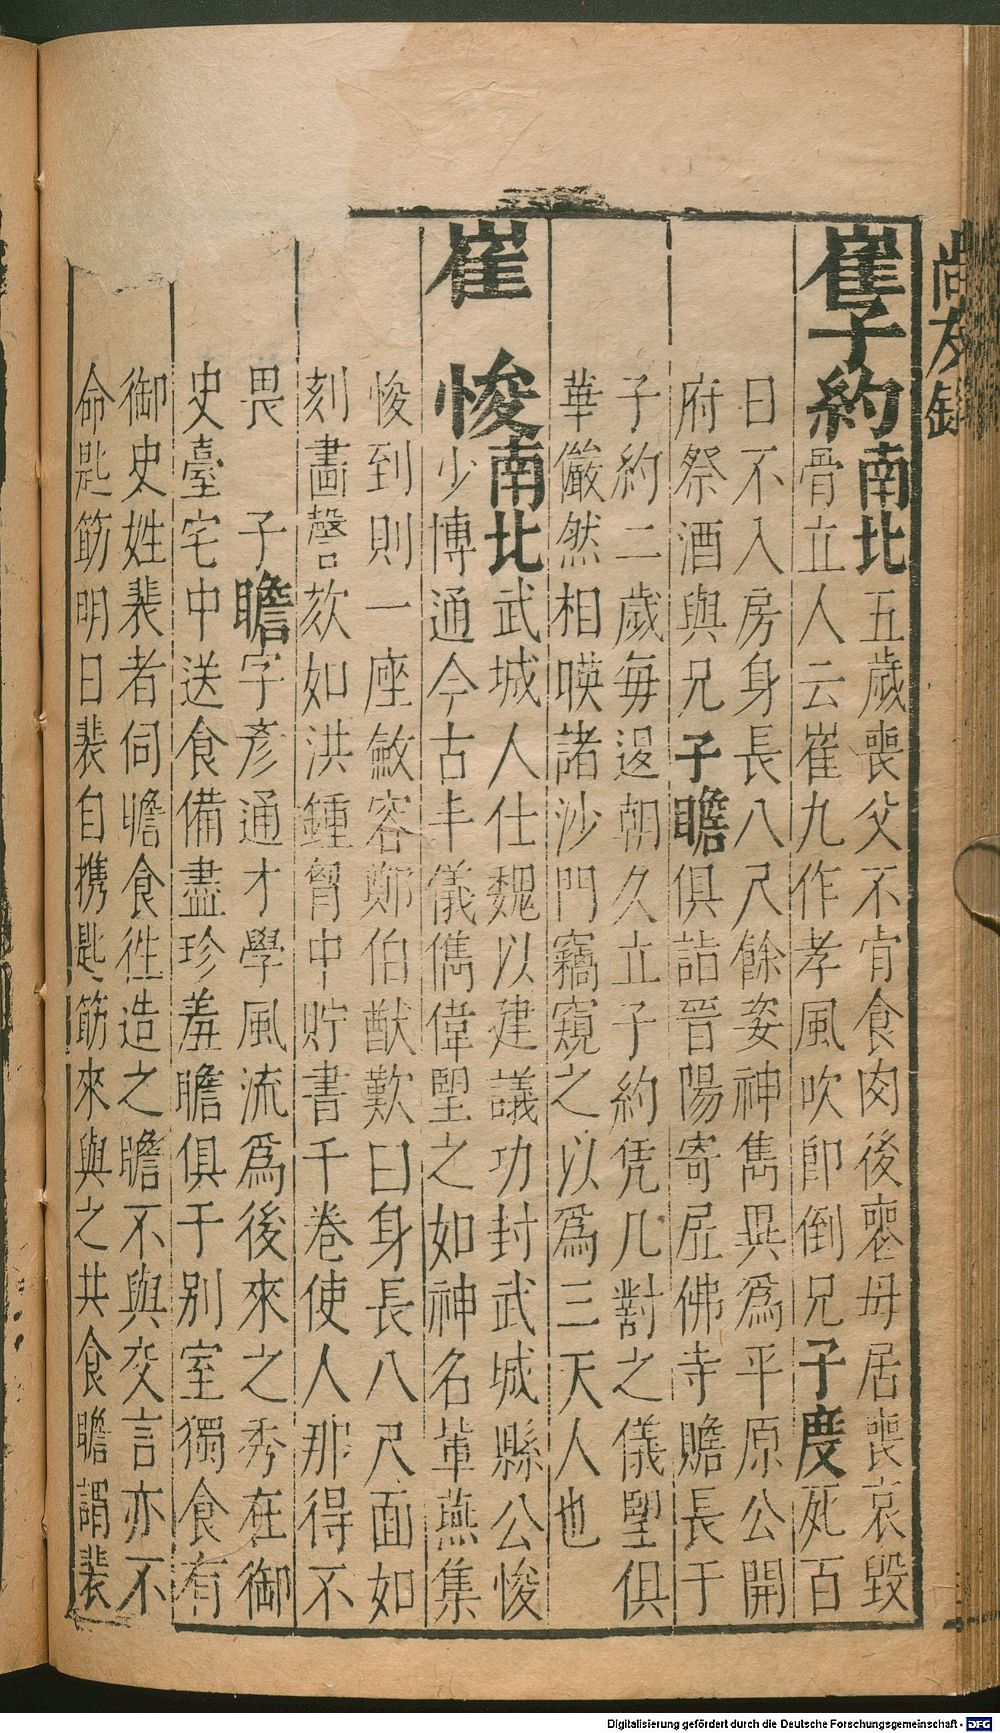 尚友錄
崔子約南北五歲喪父不肯食肉後喪母居喪哀毀
骨立人云崔九作孝風吹卽倒兄子度死百
日不入房身長八尺餘姿神雋異爲平原公開
府祭酒與兄子瞻俱詣晉陽寄居佛寺贍長于
子約二歲每退朝久立子約凭几對之儀望俱
華儼然相暎諸沙門竊窺之以爲三天人也
崔㥄南北武城人仕魏以建議功封武城縣公㥄
少博通今古丰儀儁偉望之如神名輩燕集
㥄到則一座斂容鄭伯猷歎曰身長八尺面如
刻畫謦欬如洪鍾胷中貯書千卷使人那得不
畏 子瞻字彥通才學風流爲後來之秀在御
史臺宅中送食備盡珍羞瞻俱于別室獨食有
御史姓裴者伺瞻食徃造之瞻不與交言亦不
命匙筯明日裴自携匙筯來與之共食瞻謂裴
Digitalisierung gefördert durch die Deutsche Forschungsgemeinschaft - DFG